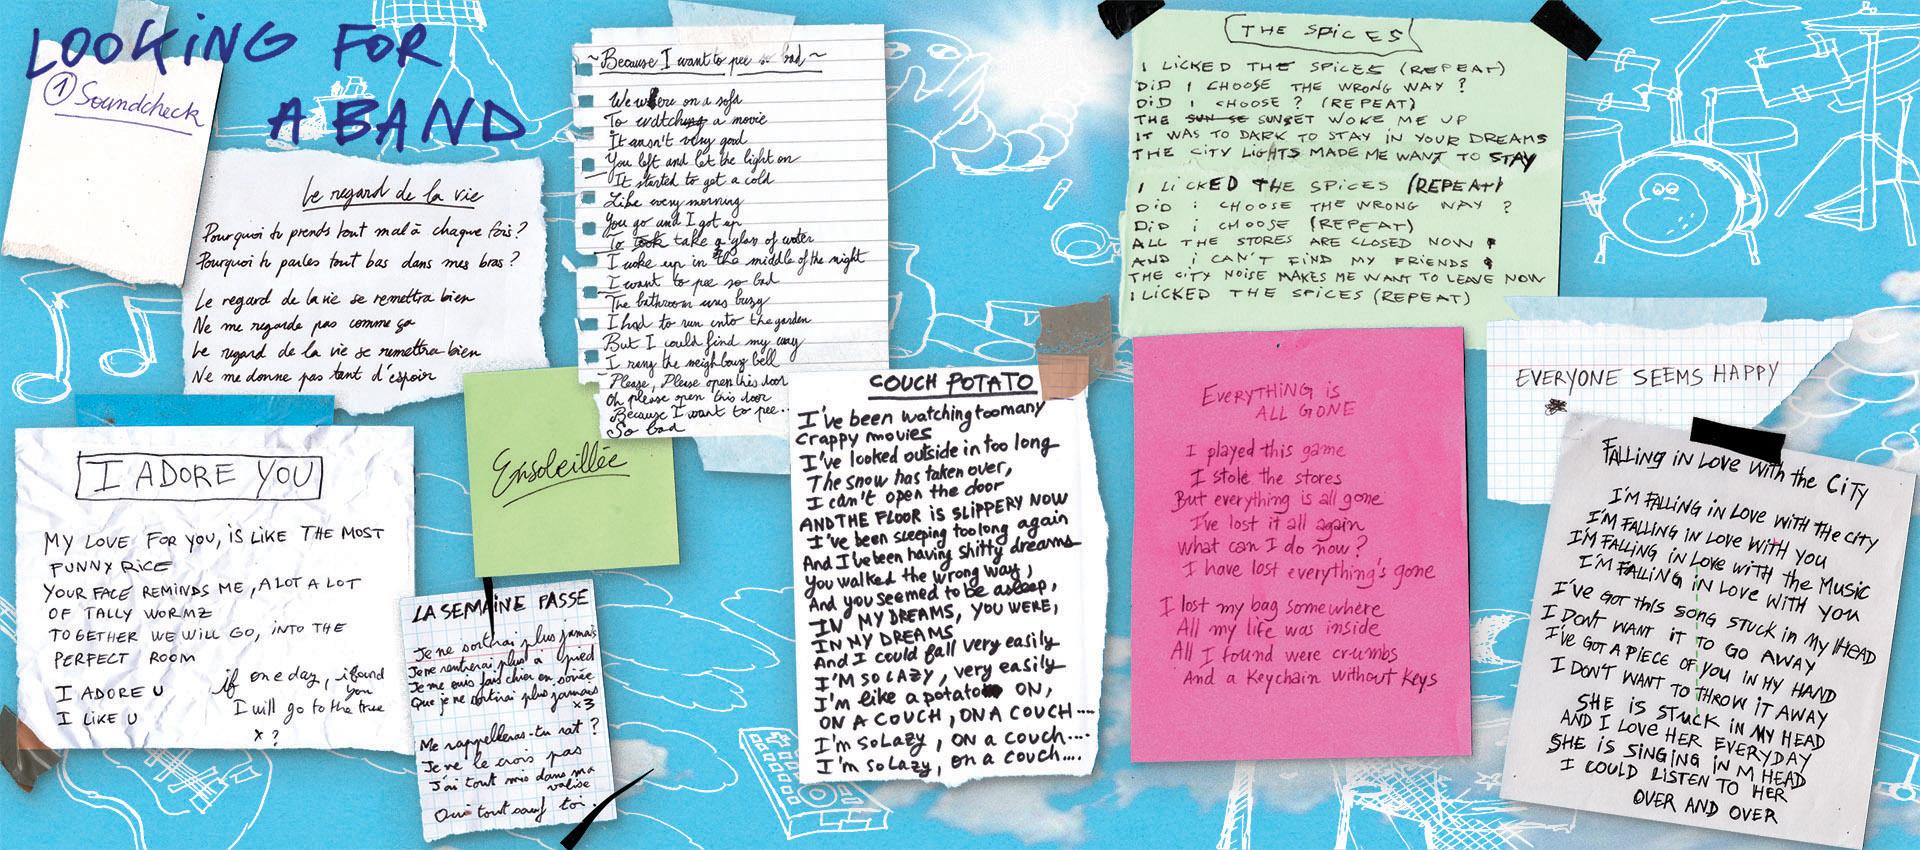 LOOKING FOR
A BAND
① Soundcheck
Le regard de la vie
Pourquoi tu prends tout mal à chaque fois ?
Pourquoi tu parles tout bas dans mes bras ?
Le regard de la vie se remettra bien
Ne me regarde pas comme ça
Le regard de la vie se remettra bien
Ne me donne pas tant d'espoir
I ADORE YOU
MY LOVE FOR YOU, IS LIKE THE MOST
FUNNY RICE
YOUR FACE REMINDS ME, A LOT A LOT
OF TALLY WORMZ
TOGETHER WE WILL GO, INTO THE
PERFECT ROOM
I ADORE U
I LIKE U
if one day, i found
you
I will go to the true
x ?
Ensoleillée
LA SEMAINE PASSE
Je ne sortirai plus jamais
Je ne rentrerai plus à pied
Je me suis fais chier en soirée
Que je ne sortirai plus jamais
x3
Me rappelleras-tu rat ?
Je ne le crois pas
J'ai tout mis dans ma
valise
Oui tout sauf toi.
~ Because I want to pee so bad ~
We were on a sofa
To watching a movie
It wasn't very good
You left and let the light on
It started to get a cold
Like every morning
You go and I got up
To took take a glass of water
I woke up in the middle of the night
I want to pee so bad
The bathroom was busy
I had to run into the garden
But I could find my way
I rang the neighbour bell
Please, Please open this door
Oh please open this door
Because I want to pee...
So bad
COUCH POTATO
I've been watching too many
crappy movies
I've looked outside in too long
The snow has taken over,
I can't open the door
AND THE FLOOR IS SLIPPERY NOW
I've been sleeping too long again
And I've been having shitty dreams
You walked the wrong way,
And you seemed to be asleep,
IN MY DREAMS, YOU WERE,
IN MY DREAMS
And I could fall very easily
I'M SO LAZY, very easily
I'm like a potato ON,
ON A COUCH, ON A COUCH....
I'm so Lazy, ON a couch....
I'm so Lazy, on a couch....
THE SPICES
I LICKED THE SPICES (REPEAT)
DID I CHOOSE THE WRONG WAY ?
DID I CHOOSE ? (REPEAT)
THE SUN SE SUNSET WOKE ME UP
IT WAS TO DARK TO STAY IN YOUR DREAMS
THE CITY LIGHTS MADE ME WANT TO STAY
I LICKED THE SPICES (REPEAT)
DID I CHOOSE THE WRONG WAY ?
DID I CHOOSE (REPEAT)
ALL THE STORES ARE CLOSED NOW
AND I CAN'T FIND MY FRIENDS
THE CITY NOISE MAKES ME WANT TO LEAVE NOW
I LICKED THE SPICES (REPEAT)
EVERYTHING IS
ALL GONE
I played this game
I stole the stores
But everything is all gone
I've lost it all again
What can I do now ?
I have lost everything's gone
I lost my bag somewhere
All my life was inside
All I found were crumbs
And a Keychain without Keys
EVERYONE SEEMS HAPPY
FALLING IN LOVE WITH the CITY
I'M FALLING IN LOVE WITH THE CITY
I'M FALLING IN LOVE WITH YOU
I'M FALLING IN LOVE WITH the MUSIC
I'M FALLING IN LOVE WITH YOU
I'VE GOT THIS SONG STUCK IN MY HEAD
I DON'T WANT IT TO GO AWAY
I'VE GOT A PIECE OF YOU IN MY HAND
I DON'T WANT TO THROW IT AWAY
SHE IS STUCK IN MY HEAD
AND I LOVE HER EVERYDAY
SHE IS SINGING IN M HEAD
I COULD LISTEN TO HER
OVER AND OVER